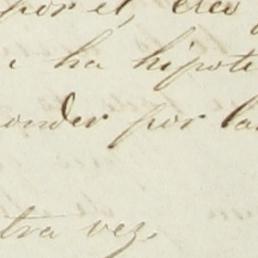 por el, creo
e ha hipote
onder por la
tra vez.